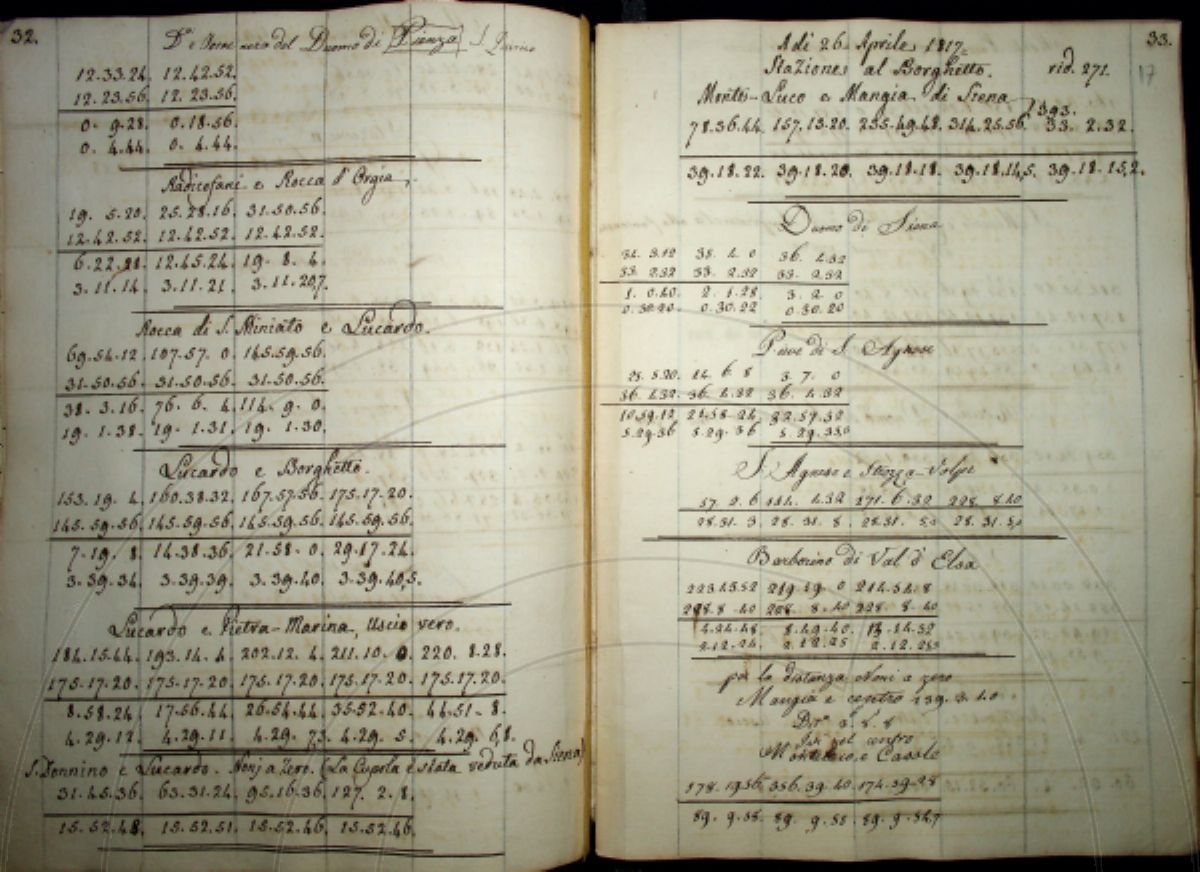 32.
Dº e Torre nero del Duomo di Pienza
12.33.24. 12.42.52.
12.23.56. 12.23.56.
0. 9.28. 0.18.56.
0. 4.44. 0. 4.44.
Radicofani e Rocca d'Orgia.
19. 5.20. 25.28.16. 31.50.56.
12.42.52. 12.42.52. 12.42.52.
6.22.28. 12.45.24. 19. 8. 4.
3.11.14. 3.11.21. 3.11.20,7.
Rocca di S. Miniato e Lucardo.
69.54.12. 107.57. 0. 145.59.56.
31.50.56. 31.50.56. 31.50.56.
38. 3.16. 76. 6. 4. 114. 9. 0.
19. 1.38. 19. 1.31. 19. 1.30.
Lucardo e Borghetto.
153.19. 4. 160.38.32. 167.57.56. 175.17.20.
145.59.56. 145.59.56. 145.59.56. 145.59.56.
7.19. 8. 14.38.36. 21.58. 0. 29.17.24.
3.39.34. 3.39.39. 3.39.40. 3.39.40,5.
Lucardo e Pietra-Marina, Uscio vero.
184.15.44. 193.14. 4. 202.12. 4. 211.10. 0. 220. 8.28.
175.17.20. 175.17.20. 175.17.20. 175.17.20. 175.17.20.
8.58.24. 17.56.44. 26.54.44. 35.52.40. 44.51. 8.
4.29.12. 4.29.11. 4.29. 7,3. 4.29. 5. 4.29. 6,8.
S. Donnino e Lucardo. Nonj a Zero. (La Cupola è stata veduta da Siena)
31.45.36. 63.31.24. 95.16.36. 127. 2. 8.
15.52.48. 15.52.51. 15.52.46. 15.52.46.
33.
17
Adi 26 Aprile 1817.
Stazione al Borghetto. rid. 271.
Monte-Luco e Mangia di Siena
393.
78.36.44. 157.13.20. 235.49.48. 314.25.56. 33. 2.32.
39.18.22. 39.18.20. 39.18.18. 39.18.14,5. 39.18.15,2.
Duomo di Siena
34. 3.12 35. 4. 0 36. 4.32
33. 2.32 33. 2.32 33. 2.32
1. 0.40. 2. 1.28. 3. 2. 0
0.30.20. 0.30.22 0.30.20
Pieve di S. Agnese
25. 5.20. 14. 6. 8 3. 7. 0
36. 4.32. 36. 4.32 36. 4.32
10.59.12 21.58.24. 32.57.32
5.29.36 5.29.36 5.29.35,0
S. Agnese e Stozza-Volpe
57. 2. 6 114. 4.32 171. 6.32 228. 8.40
28.31. 3 28.31. 8 28.31. 5,0 28.31. 5,0
Barberino di Val d'Elsa
223.43.52 219.19. 0 214.54. 8
228. 8.40 228. 8.40 228. 8.40
4.24.48. 8.49.40. 13.14.32
2.12.24. 2.12.25 2.12.25,3
per la distanza Noni a zero
Mangia e centro 139. 3.40
3. 8. 8
Casale
178.19.56 356.39.40 174.59.28
89. 9.58. 89. 9.55 89. 9.54,7